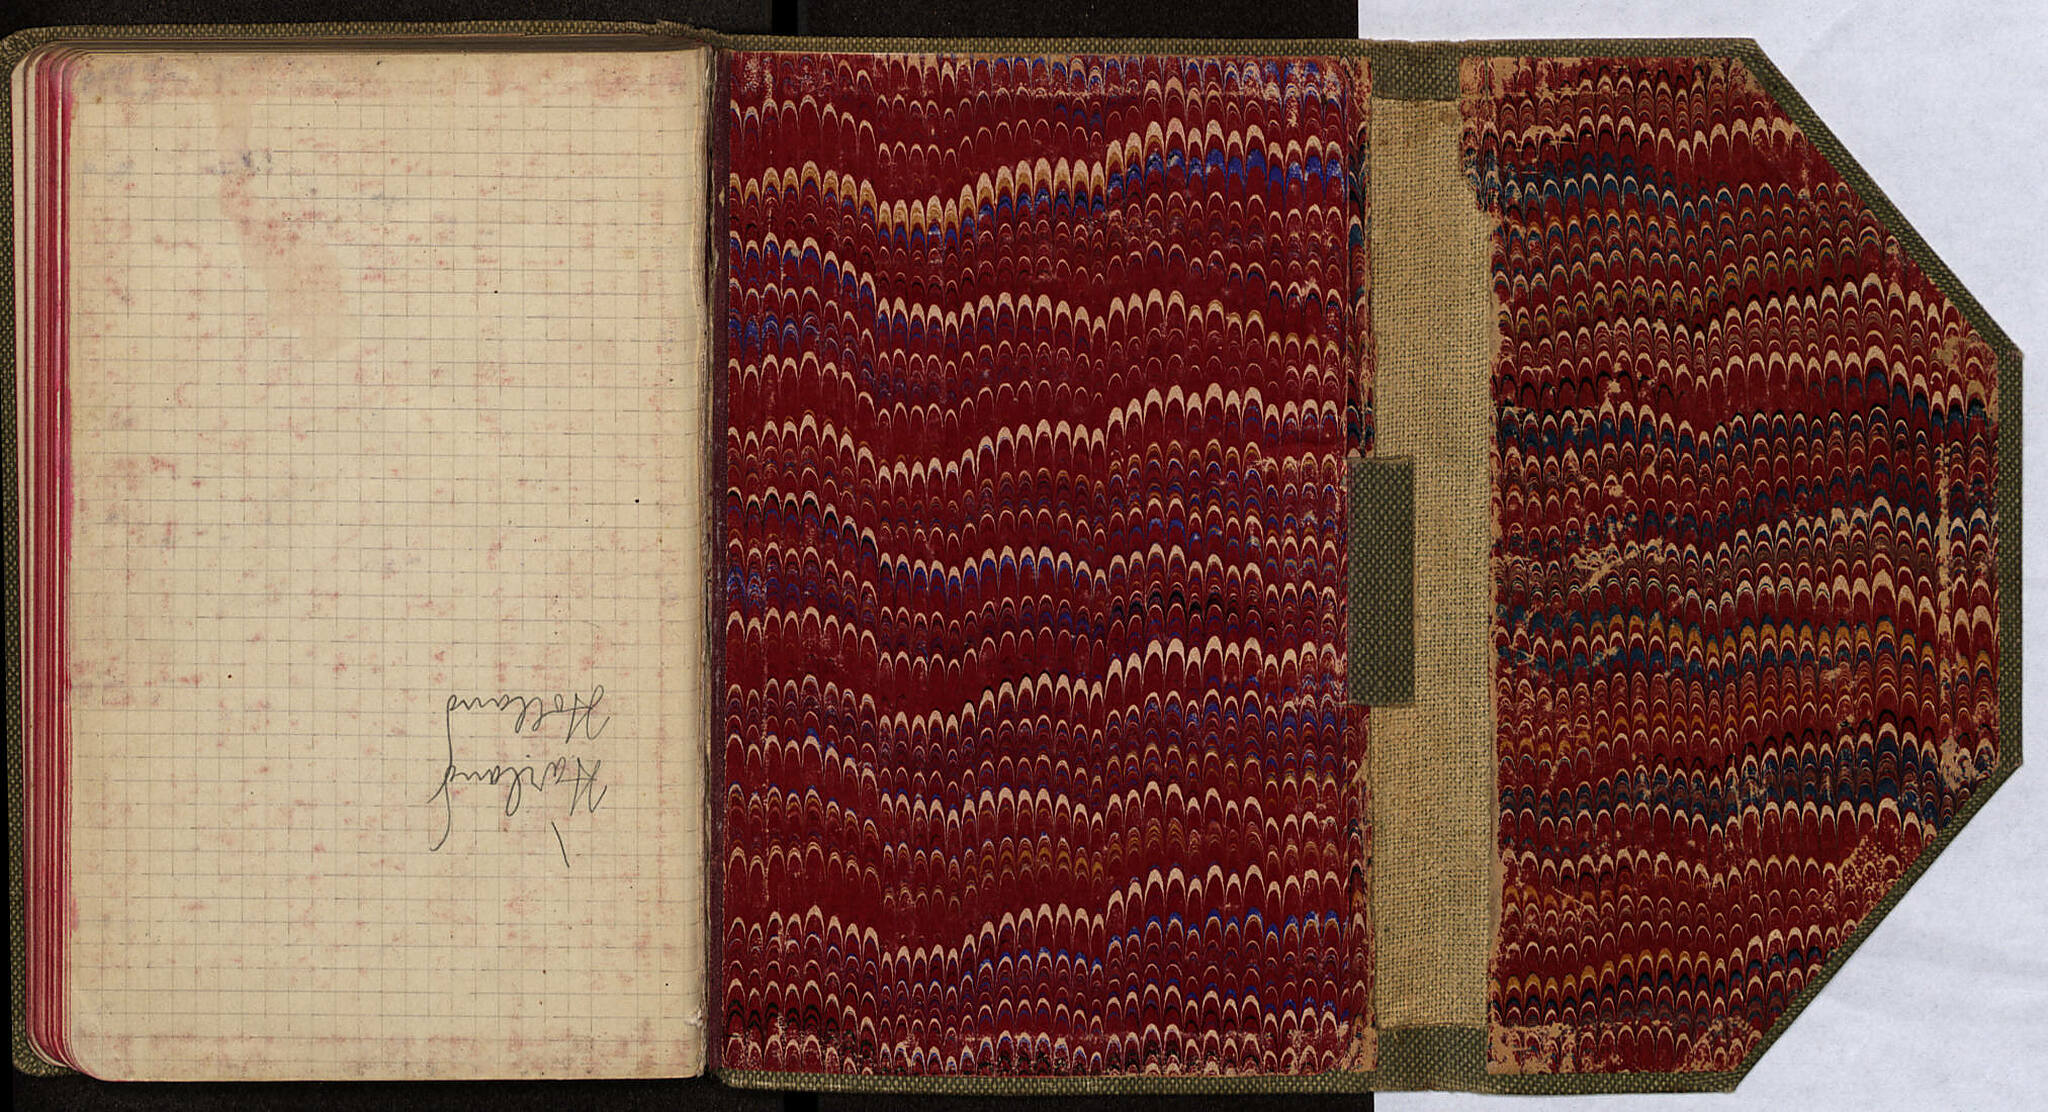 Harland
Holland